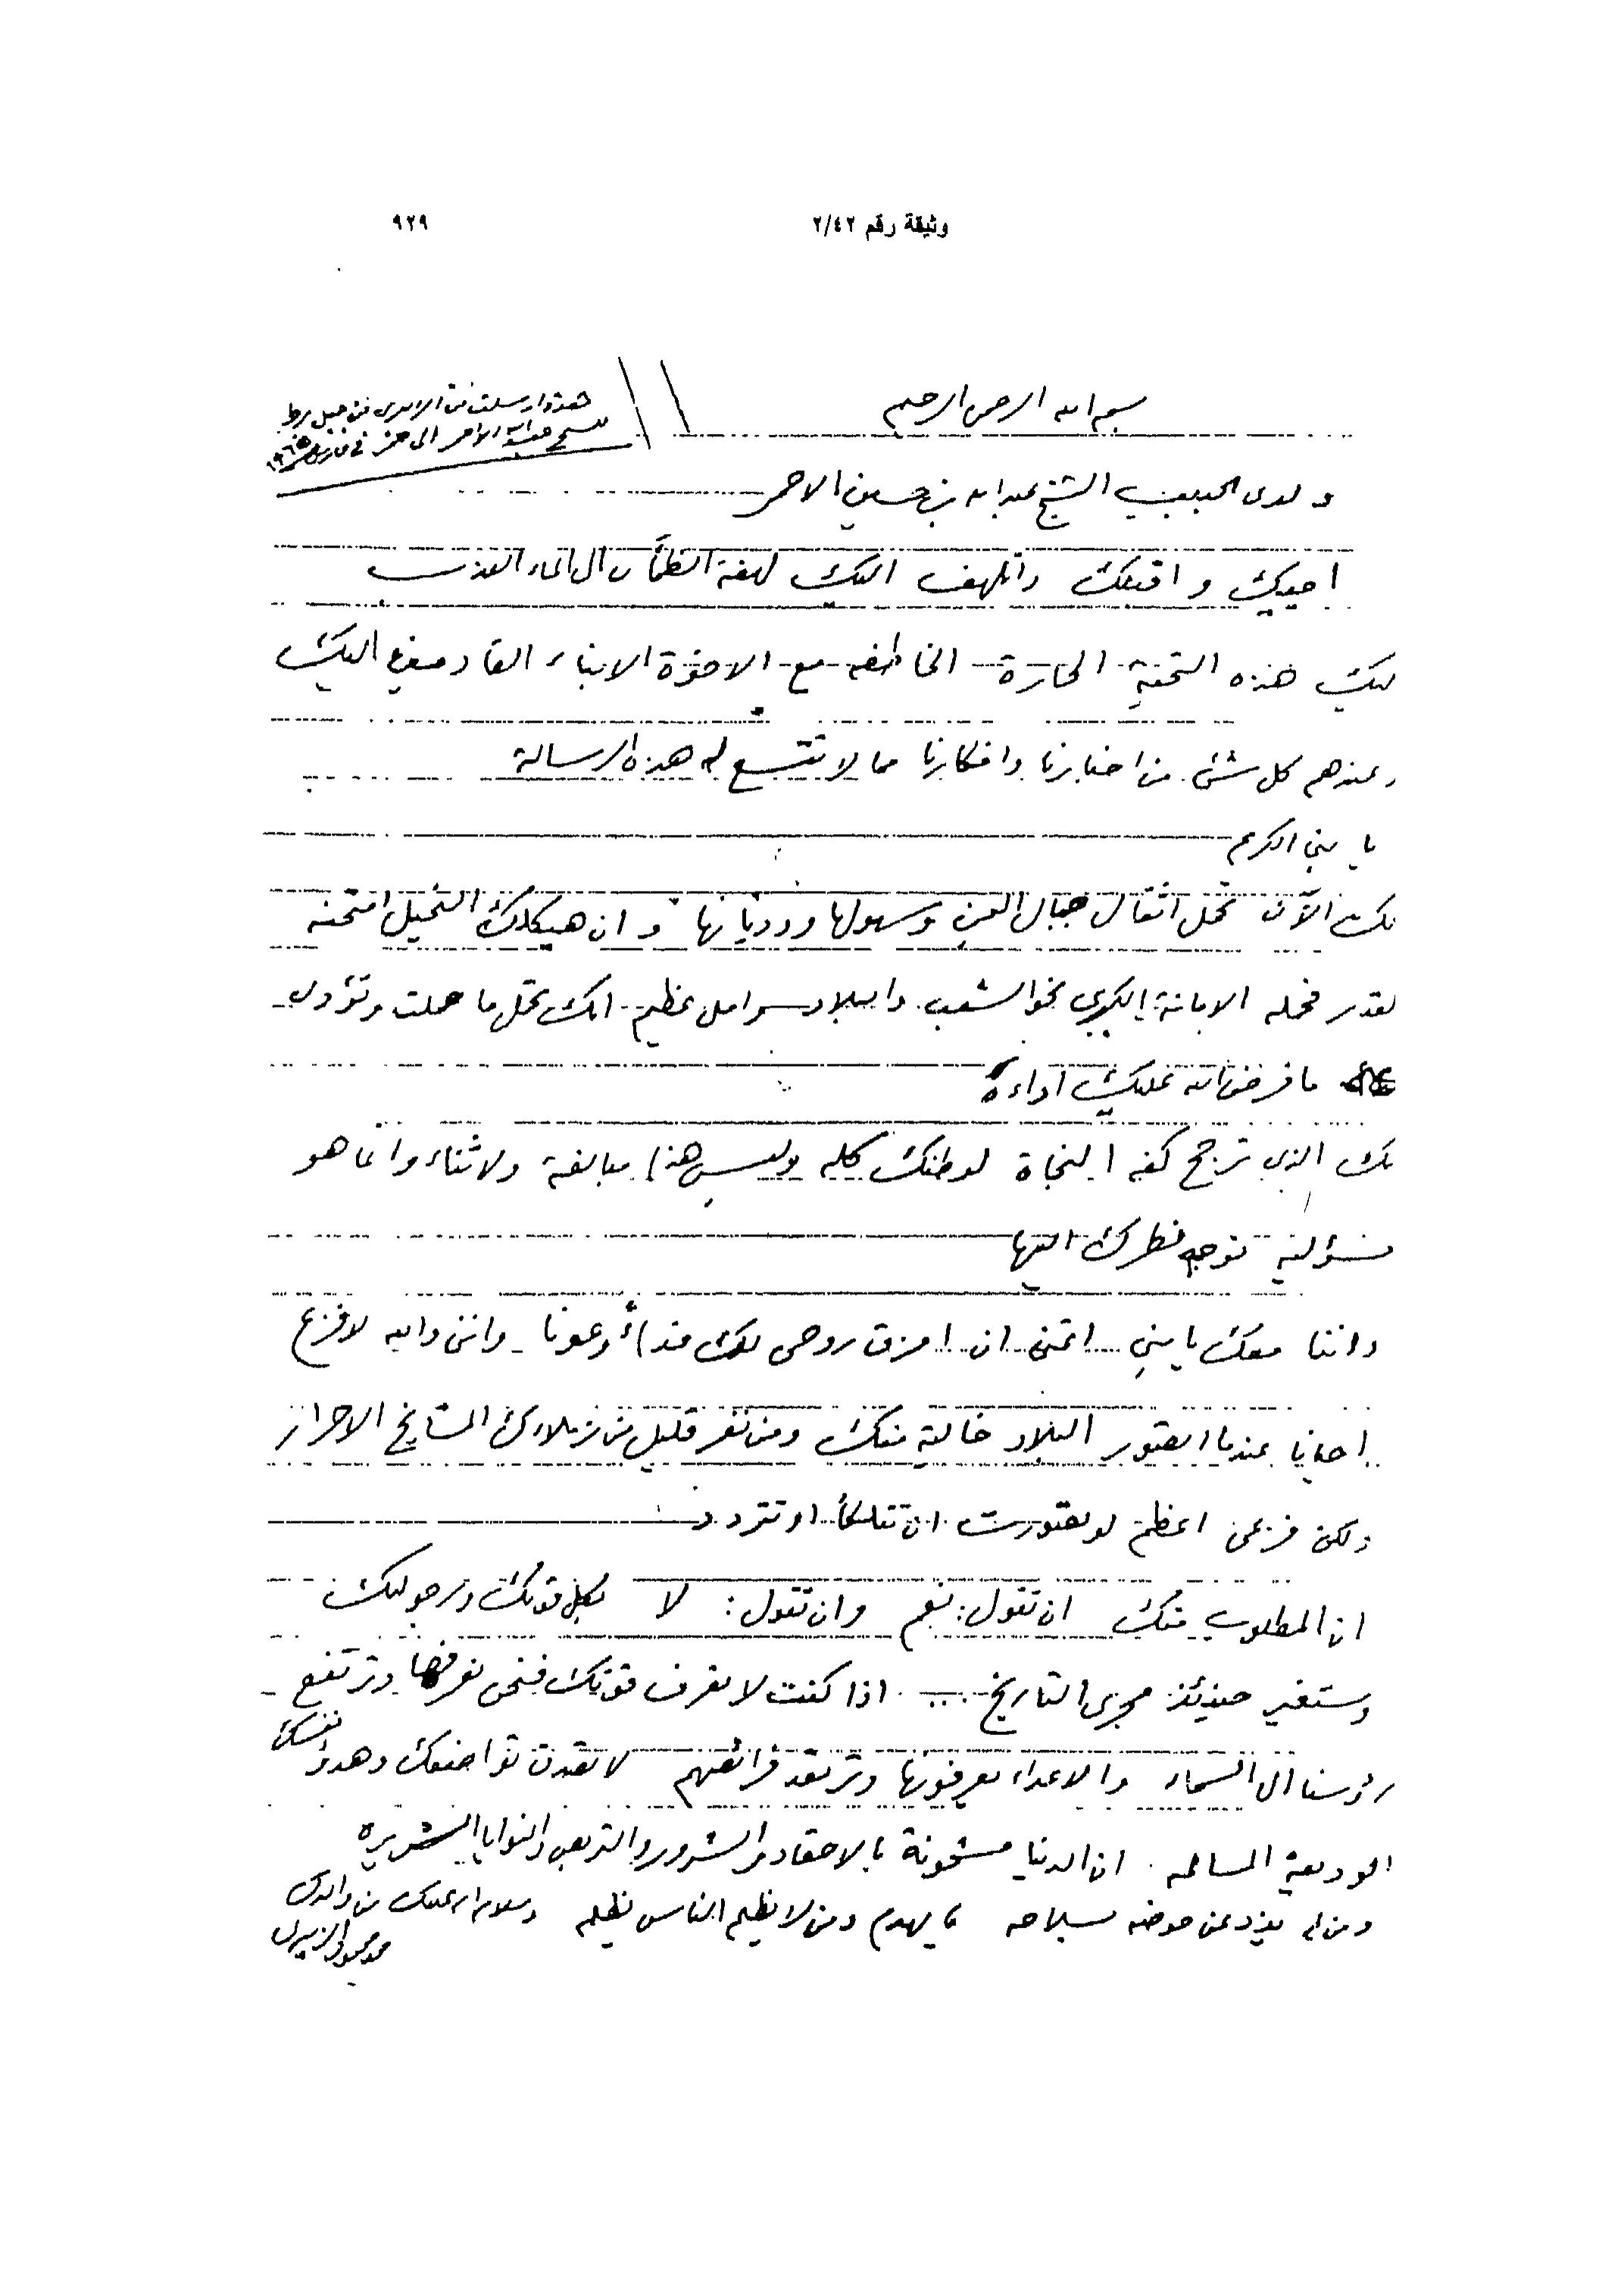 وثيقة رقم ٢/٤٢
٩٢٩
بسم الله الرحمن الرحيم
هذه ارسلت من الزبيري من جبل برط
للشيخ عبدالله الاحمر الى خمر في مارس ١٩٦٥
ولدى الحبيب الشيخ عبدالله بن حسين الاحمر
احييك واقبلك واتلهف اليك لهفة الظمآن الى الماء العذب
ليك هذه التحية الحارة الخاطفه مع الاخوة الابناء القادمين اليك
وعندهم كل شئ من اخبارنا وافكارنا مما لا تتسع له هذه الرسالة
يا بني الكريم
نك الآن تحمل اثقال جبال اليمن وسهولها ووديانها وان هيكلك النحيل امتحنه
لقدر فحمله الامانة الكبرى نحو الشعب والبلاد وامل عظيم انك تحمل ما حملت وتؤدى
ما فرض الله عليك اداءه
نك الذى ترجح كفه النجاة لوطنك كله وليس هذا مبالغة ولا ثناء وانما هو
سؤلية نوجه نظرك اليها
واننا معك يا بني اتمنى ان امزق روحى لك فداءً وعونا وانني والله لافزع
احيانا عندما اتصور البلاد خالية منك ومن نفر قليل من زملاءك المشايخ الاحرار
ولكن فزعى اعظم لو تصورت ان تتلكأ او تتردد
ان المطلوب منك ان تقول: نعم وان تقول: لا بكل قوتك ورجولتك
وستغير حينئذ مجرى التاريخ .... اذا كنت لا تعرف قوتك فنحن نعرفها وترتفع
رؤسنا الى السماء والاعداء يعرفونها وترتعد فرائصهم لا تقدن تواضعك وهدؤ نفسك
الوديعة المسالمه. ان الدنيا مشحونة بالاحقاد والشرور والتربص والنوايا الشريره
ومن لم يذد عن حوضه بسلاحه يهدم ومن لا يظلم الناس يظلم وسلام الله عليك من والدك
محمد محمود الزبيرى